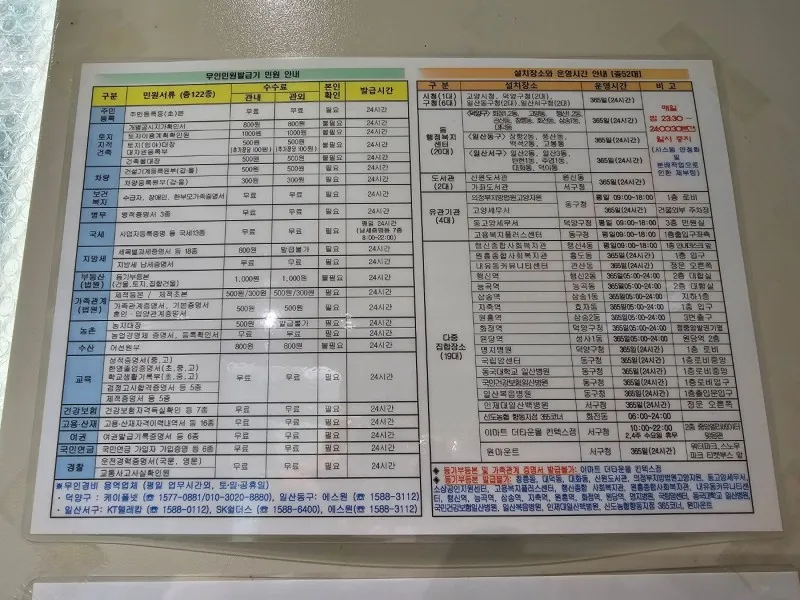 무인민원발급기 민원 안내
구분 민원서류 (총122종) 수수료 본인확인 발급시간
관내 관외
주민등록 주민등록등(초)본 무료 무료 필요 24시간
토지 지적 건축 개별공시지가확인서 800원 800원 불필요 24시간
토지이용계획확인원 1000원 1000원 불필요 24시간
토지(임야)대장 500원 500원 불필요 24시간
대지권등록부 (추가장당 100원) (추가장당 100원)
건축물대장 500원 500원 불필요 24시간
차량 건설기계등록원부(갑·을) 500원 500원 필요 24시간
차량등록원부(갑·을) 300원 300원 필요 24시간
보건복지 수급자, 장애인, 한부모가족증명서 무료 무료 필요 24시간
법무 병적증명서 3종 무료 무료 필요 24시간
국세 사업자등록증명 등 국세13종 무료 무료 필요 평일 24시간
(납세증명등 7종
8:00~22:00)
지방세 세목별과세증명서 등 18종 800원 발급불가 필요 24시간
지방세 납세증명서 무료 무료 필요 24시간
부동산(법원) 등기부등본 1,000원 1,000원 불필요 24시간
(건물,토지,집합건물)
가족관계(법원) 제적등본 / 제적초본 500원/300원 500원/300원 필요 24시간
가족관계증명서, 기본증명서 500원 500원 필요 24시간
혼인 · 입양관계증명서
농촌 농지대장 500원 발급불가 필요 24시간
농업경영체 증명서, 등록확인서 무료 무료 필요 24시간
수산 어선원부 800원 800원 불필요 24시간
교육 성적증명서(중,고)
현역졸업증명서(초,중,고)
학교생활기록부(초,중,고) 무료 무료 필요 24시간
검정고시합격증명서 등 5종
제적증명서 등 5종
건강보험 건강보험자격득실확인 등 7종 무료 무료 필요 24시간
고용·산재 고용·산재자격이력내역서 등 16종 무료 무료 필요 24시간
여권 여권발급기록증명서 등 6종 무료 무료 필요 24시간
국민연금 국민연금 가입자 가입증명 등 6종 무료 무료 필요 24시간
경찰 운전경력증명서(국문, 영문) 무료 무료 필요 24시간
교통사고사실확인원
※무인경비 용역업체 (평일 업무시간외, 토·일·공휴일)
· 덕양구 : 케이폴넷 (☎ 1577-0881/010-3020-8880), 일산동구: 에스원 (☎ 1588-3112)
· 일산서구: KT텔레캅 (☎ 1588-0112), SK쉴더스 (☎ 1588-6400), 에스원(☎ 1588-3112)
설치장소와 운영시간 안내 (총52대)
구 분 설치장소 운영시간 비 고
시청(1대) 고양시청, 덕양구청(2대), 365일(24시간)
구청(6대) 일산동구청(2대), 일산서구청(2대)
동 행정복지센터 (20대) (덕양구) 365일(24시간)
(일산동구) 장항2동, 풍산동, 백석2동, 고봉동 365일(24시간)
(일산서구) 일산2동, 일산3동, 365일(24시간)
대화동, 덕이동
매일
밤 23:30 ~
24:00(30분간)
일시 중지
(시스템 안정화 및
분배작업으로
인한 재부팅)
도서관 (2대) 신원도서관 원신동 365일(24시간)
가좌도서관 서구청
유관기관 (4대) 의정부지방법원고양지원 동구청 평일 09:00-18:00 1층 로비
고양세무서 365일(24시간) 건물외부 주차장
동고양세무서 덕양구청 평일 09:00-18:00 3층 민원실
고용복지플러스센터 동구청 평일09:00~18:00 1층출입구좌측
다중 집합장소 (19대) 행신종합사회복지관 행신4동 평일 09:00~18:00
원흥종합사회복지관 흥도동 365일(24시간) 1층 입구
내유동커뮤니티센터 관산동 365일(24시간) 정문 오른쪽
행신역 행신2동 365일05:00-24:00 2층 대합실
능곡역 능곡동 365일05:00-24:00 2층 대합실
삼송역 삼송1동 365일05:00-24:00 지하1층
지축역 효자동 365일05:00-24:00 1층 입구
원흥역 삼송2동 365일05:00-24:00 3번출구
화정역 덕양구청 365일05:00-24:00
원당역 성사1동 365일05:00-24:00 원당역 2층
명지병원 덕양구청 365일(24시간) 1층 로비
국립암센터 동구청 365일(24시간) 1층로비중앙
동국대학교 일산병원 동구청 365일(24시간) 1층로비중앙
국민건강보험일산병원 동구청 365일(24시간) 1층로비입구
일산복음병원 동구청 365일(24시간) 1층출입문입구
인제대일산백병원 서구청 365일(24시간) 정문 오른쪽
신도농협향동지점 365코너 화전동 06:00~24:00
이마트 더타운몰 킨텍스점 서구청 10:00-22:00
2,4주 수요일 휴무
원마운트 서구청 365일(24시간) 워터파크, 스노우파크 티켓부스 앞
◈ 등기부등본 및 가족관계 증명서 발급불가: 이마트 더타운몰 킨텍스점
◈ 등기부등본 발급불가: 창릉동, 대덕동, 대화동, 신원도서관, 의정부지방법원고양지원, 동고양세무서,
소상공인지원센터, 고용복지플러스센터, 행신종합 사회복지관, 원흥종합사회복지관, 내유동커뮤니티센
터, 행신역, 능곡역, 삼송역, 지축역, 원흥역, 화정역, 원당역, 명지병원, 국립암센터, 동국대학교 일산병원,
국민건강보험일산병원, 일산복음병원, 인제대일산백병원, 신도농협향동지점 365코너, 원마운트